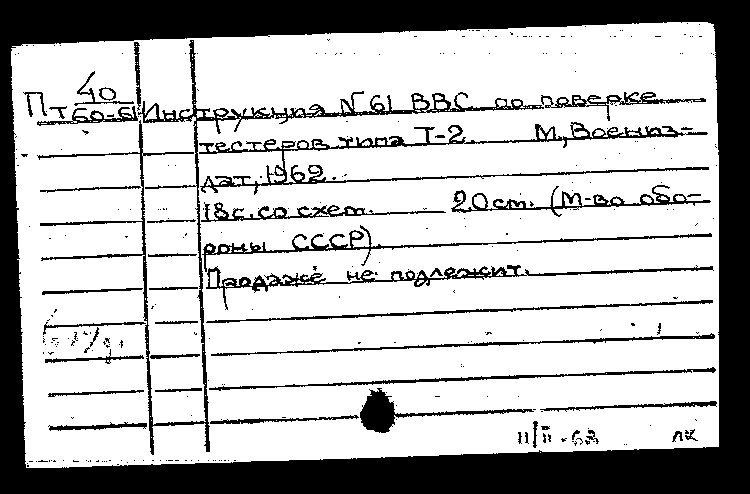 40
Пт 60-61 Инструкция №61 ВВС по поверке
тестеров типа Т-2. М., Воениз-
дат, 1962.
18с. со схем. 20 см. (М-во обо-
роны СССР).
Продаже не подлежит.
11/II-63 лк